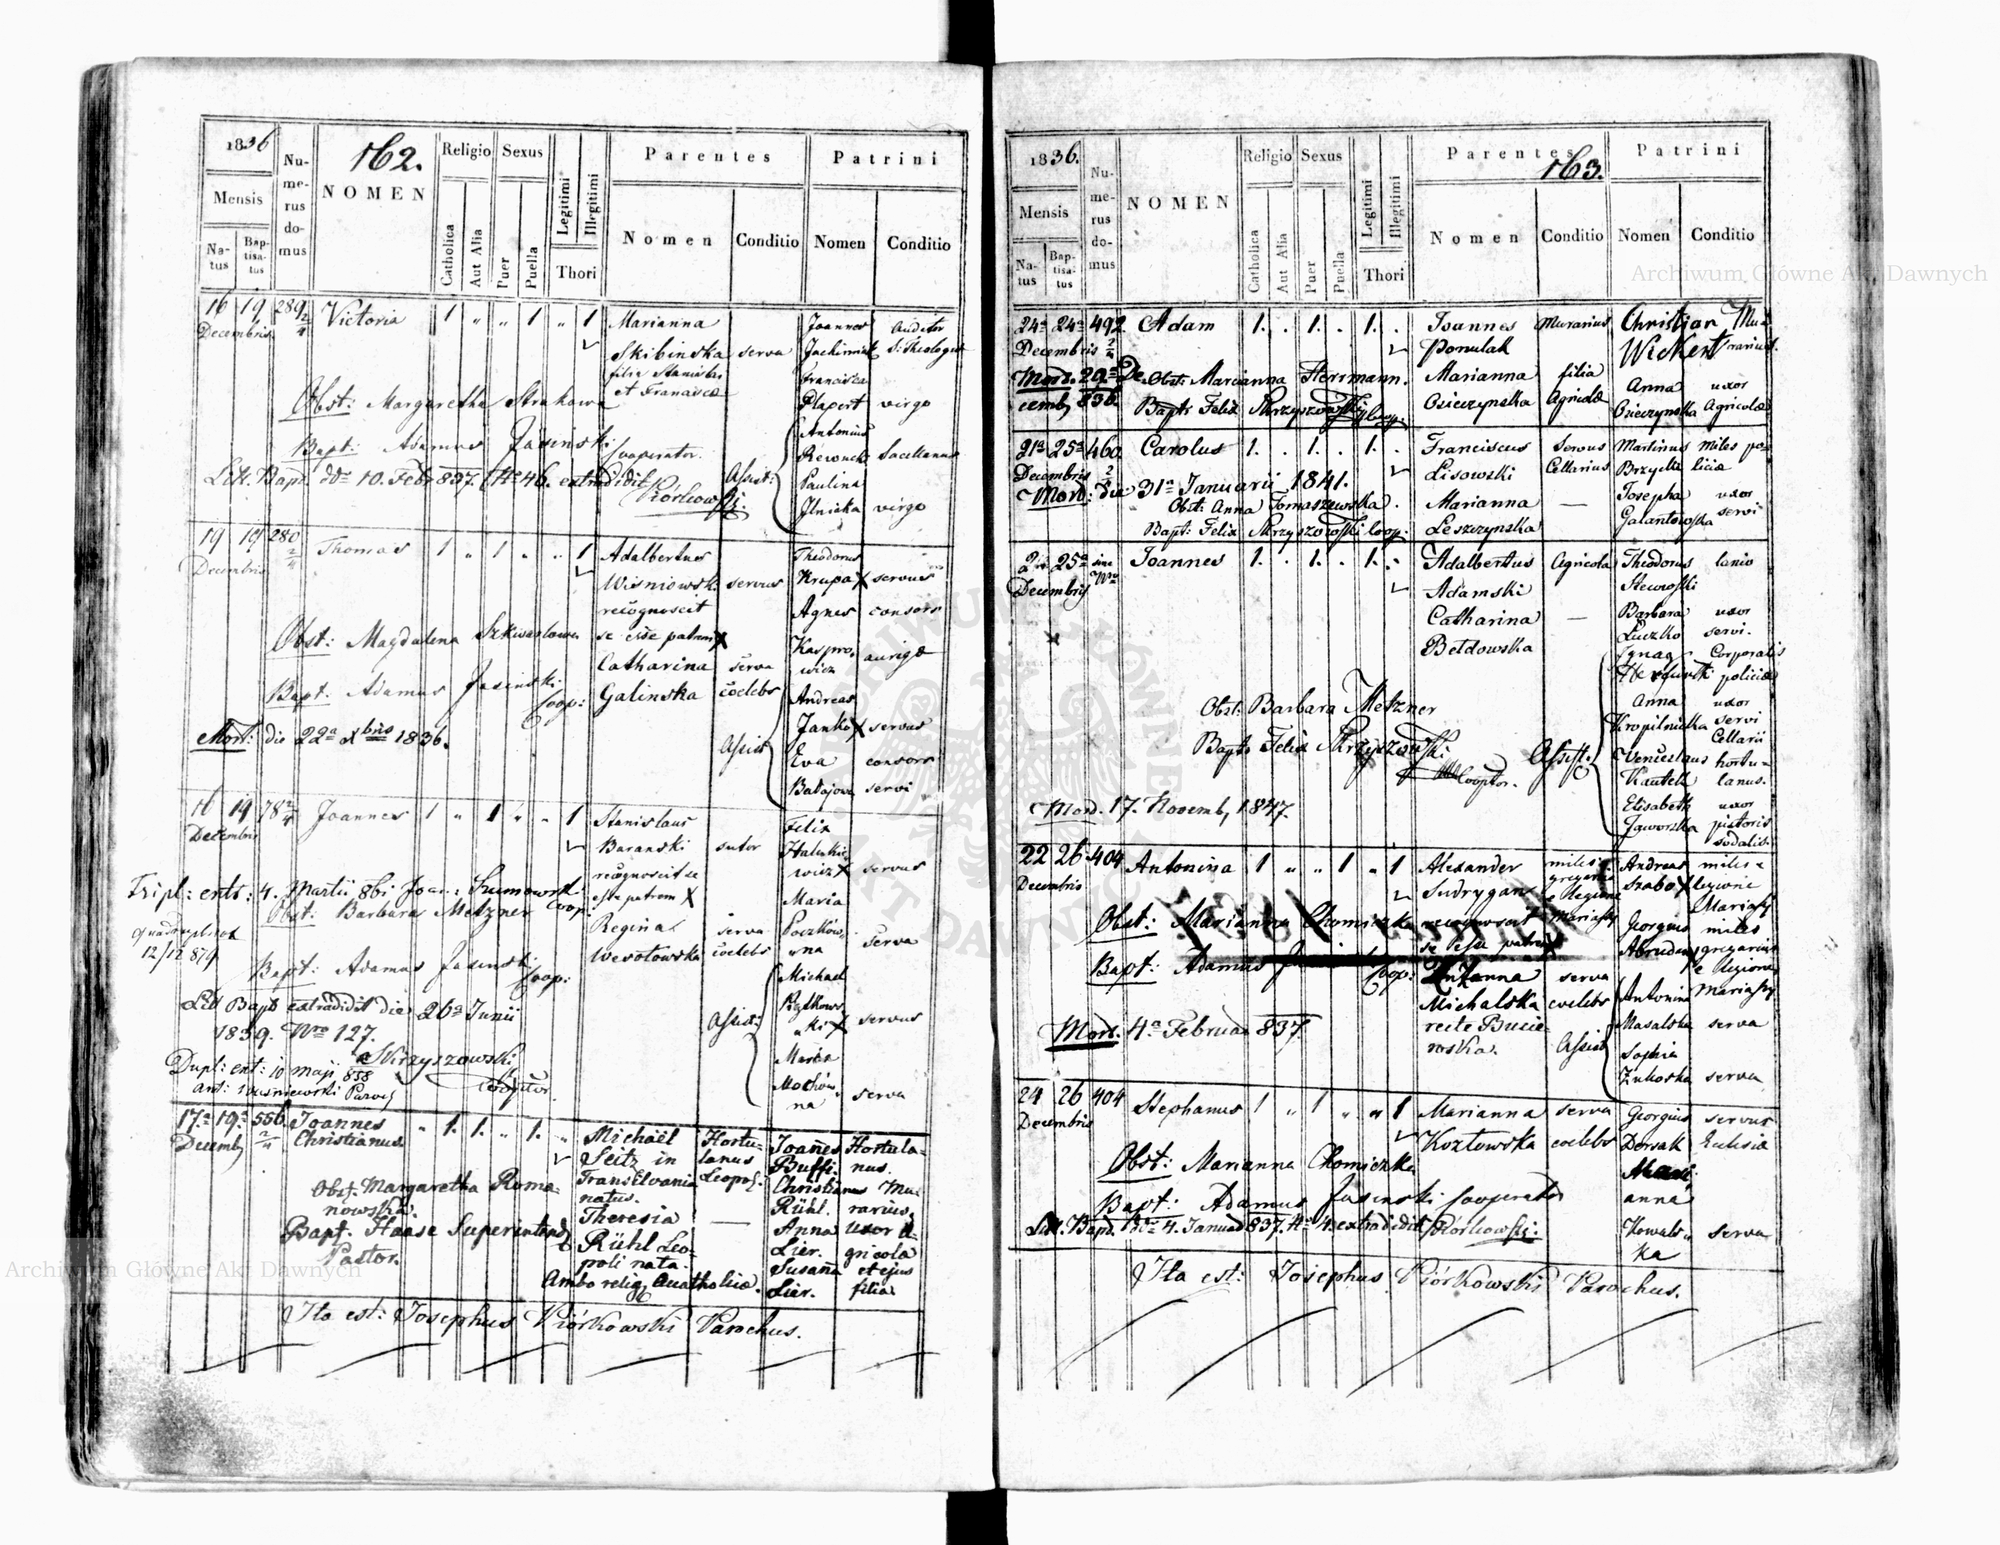 1836
162.
Numerus domus
NOMEN
Religio
Sexus
Parentes
Patrini
Mensis
Natus
Baptisatus
Catholica
Aut Alia
Puer
Puella
Legitimi
Illegitimi
Thori
Nomen
Conditio
Nomen
Conditio
16 19 289 2/4 Victoria 1 „ „ 1 „ 1 Marianna Joannes auditor
Decembris Skibinska serva Jachimiak S: Theologiæ
filia Stanislai Francisca
et Franciscæ
Obst: Margaretha Strakowa Plapert virgo
Bapt: Adamus Jasinski Cooperator. Antonius
Lit. Bapt. dto 10. Febr 837. No 46. extradidit Assist: sacellanus
Piórkowski Paulina
Ilnicka virgo
19 19 280 2/4 Thomas 1 „ 1 „ „ 1 Adalbertus Theodorus
Decembris Wisniowski servus Krupa X servus
recognoscit Agnes consors
Obst: Magdalena se esse patrem X Kaspro-
Catharina serva wicz aurigæ
Bapt. Adamus Jasinski Coop: Galinska coelebs Andreas
Mort: die 22a Xbris 1836. Janko X servus
Assist: Eva consors
servi
16 19 78 2/4 Joannes 1 „ 1 „ „ 1 Stanislaus Felix
Decembris Baranski sutor
recognoscit se wicz X servus
Tripl: ent: 4. Martii 861 Joan: Szumowski Coop: esse patrem X Maria
Obst: Barbara Metzner
Regina serva
12/12 879 Wesolowska coelebs wna serva
Bapt: Adamus Jasinski Coop: Michael
Lit Bapt extradidit die 26a Junii Assist:
1839. Nro 127. ski X servus
Skrzyszowski Cooptor. Maria
Dupl: ent: 10 maji 858
serva
17a 19a 556 2/4 Joannes „ 1. 1. „ 1. „ Michaël Hortu- Joanes Hortula-
Decemb Christianus Seitz in lanus Buffi. nus.
Transilvania Leopol: Christianus Mu-
Obst. Margaretha Roma- natus. Rühl. rarius.
nowska. Theresia — Anna Uxor a-
Bapt. Haase Superintend Rühl Leo- Lier. gricola
Pastor. poli nata. Susana et ejus
Ambo relig. Acatholicæ. Lier. filia
Ita est: Josephus Piórkowski Parochus.
1836.
163.
Numerus domus
NOMEN
Religio
Sexus
Parentes
Patrini
Mensis
Natus
Baptisatus
Catholica
Aut Alia
Puer
Puella
Legitimi
Illegitimi
Thori
Nomen
Conditio
Nomen
Conditio
24a 24a 492 Adam 1. . 1. . 1. . Joannes Murarius Christian Mu-
Decembris 2/4 Ponulak Wickert rarius.
Mort. 29a De- Obst: Marianna Herrmann. Marianna filia Anna uxor
cemb 836. Bapts Felix Skrzyszowski Coop: Osieczynska Agricolæ Osieczynska Agricolæ
21a 25a 460 Carolus 1. . 1. . 1. . Franciscus Servus Martinus miles po-
Decembris 2/4 Lisowski Cellarius liciæ
Mort: die 31a Januarii 1841. Marianna — Josepha uxor
Obst: Anna Tomaszewska. Leszczynska servi
Bapt: Felix Skrzyszowski Coop:
25a sine Nro Joannes 1. . 1. . 1. . Adalbertus Agricola Theodorus lanio
Decembris Adamski
Catharina — Barbara uxor
Betdowska Luczko servi.
Ignaz Corporalis
policiæ
Obst: Barbara Metzner Anna uxor
Kropilnicka servi
Bapts Felix Skrzyszowski Cooptor. Assist. Cellarii
Wenceslaus hortu-
Kautek lanus.
Mort. 17. Novemb, 1847. Elisabeth uxor
Jaworska pistoris
sodalis
22 26 404 Antonina 1 „ „ 1 „ 1 Alexander miles Andreas miles
Decembris gregarius Szabo X legione
Obst: Marianna Chomiczka recognoscit Mariassy Georgius miles
se esse patrem X gregarius
Bapt: Adamus Jasinski Coop: serva e Legione
Michalska coelebs Antonina Mariassy
Mort. 4a Februar 837 recte Assist Masalska serva
Sophia
Zukoska serva
24 26 404 Stephanus 1 „ 1 „ „ 1 Marianna serva Georgius servus
Decembris Kozlowska coelebs Dorsak Eclesiæ
Obst: Marianna Chomiczka
Bapt: Adamus Jasinski Cooperator anna
Lit. Bapt. dto 4. Januar 837. No 4. extradidit Piórkowski Kowals-
ka serva
Ita est: Josephus Piórkowski Parochus.
Archiwum Główne Akt Dawnych
Archiwum Główne Akt Dawnych
ARCHIWUM GŁÓWNE AKT DAWNYCH